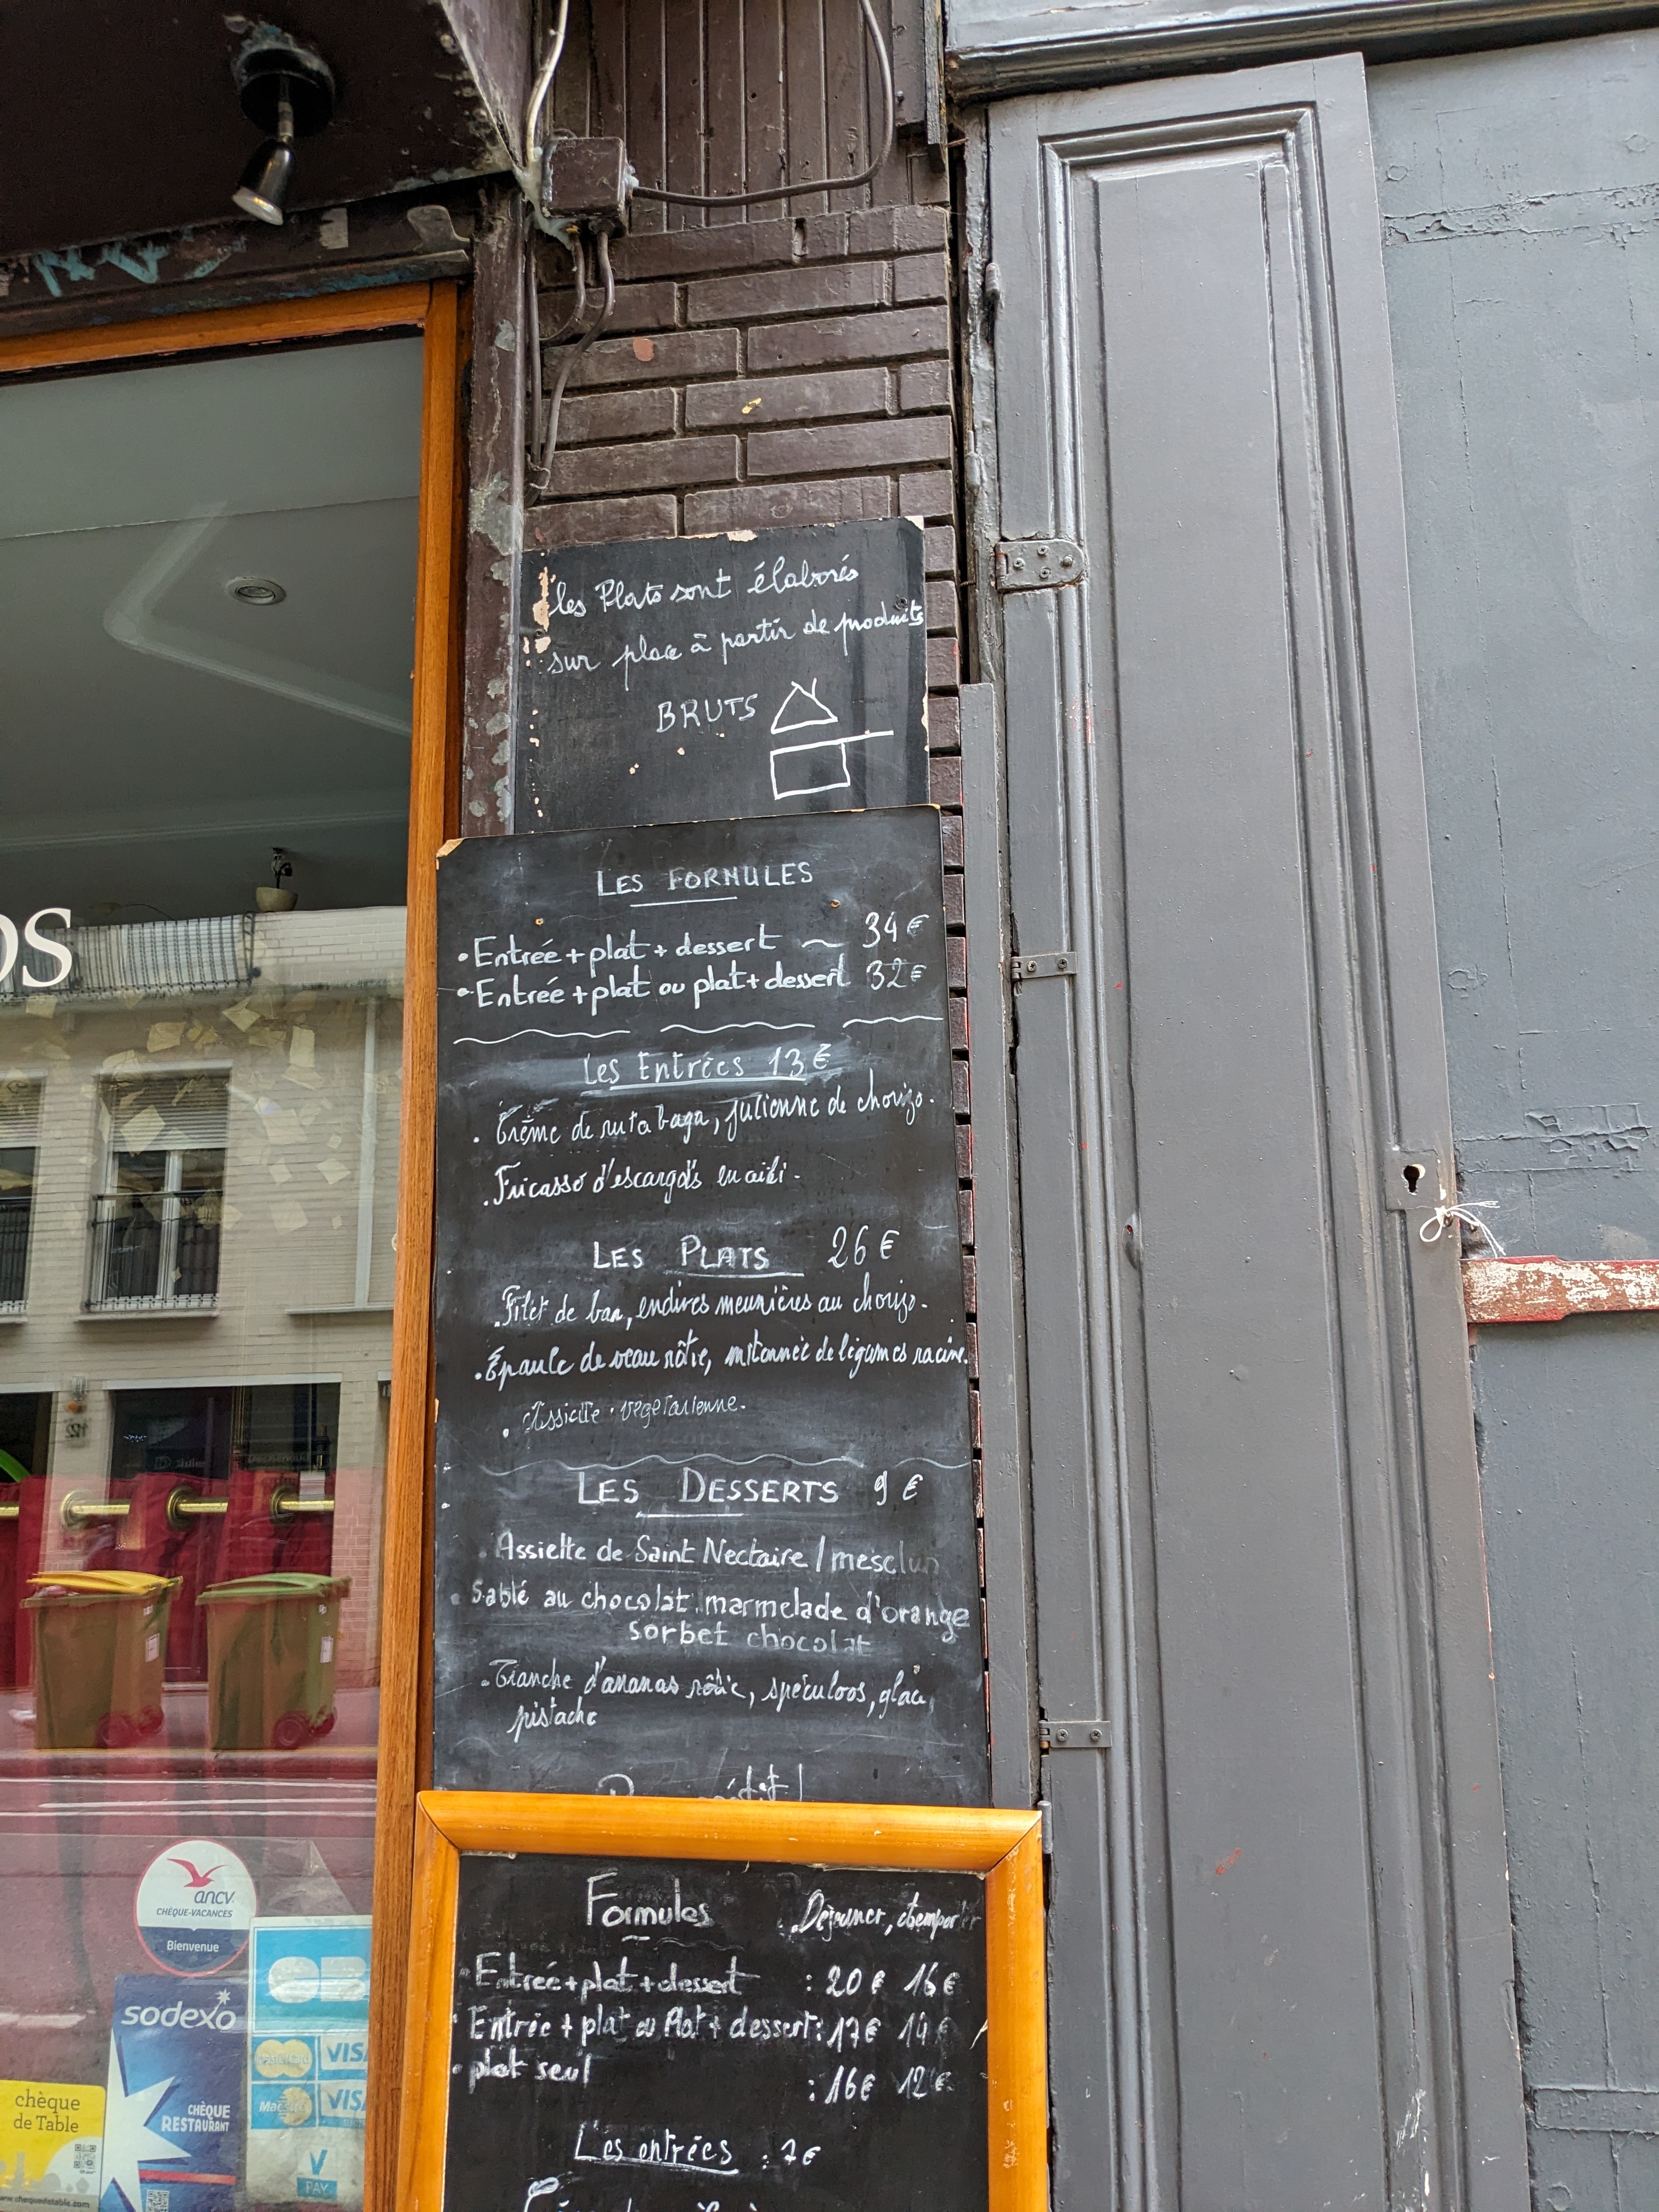 les Plats sont élaborés
sur place à partir de produits
BRUTS
LES FORMULES
• Entrée + plat + dessert ~ 34€
• Entrée + plat ou plat + dessert 32€
Les Entrées 13€
. Crème de rutabaga, julienne de chorizo.
. Fricassé d'escargots en aïoli.
LES PLATS 26€
. Filet de bar, endives meunières au chorizo.
. Épaule de veau rôtie, mitonnée de légumes racine.
. Assiette végétarienne.
LES DESSERTS 9€
. Assiette de Saint Nectaire / mesclun
. Sablé au chocolat, marmelade d'orange
sorbet chocolat
. Tranche d'ananas rôtie, spéculoos, glace
pistache
Formules Déjeuner, à emporter
• Entreé + plat + dessert : 20€ 16€
• Entrée + plat ou Plat + dessert : 17€ 14€
• plat seul : 16€ 12€
Les entrées : 7€
os
ancv
CHÈQUE-VACANCES
Bienvenue
CB
sodexo
CHÈQUE
RESTAURANT
chèque
de Table
www.chequedetable.com
VISA
Maestro VISA
V
PAY